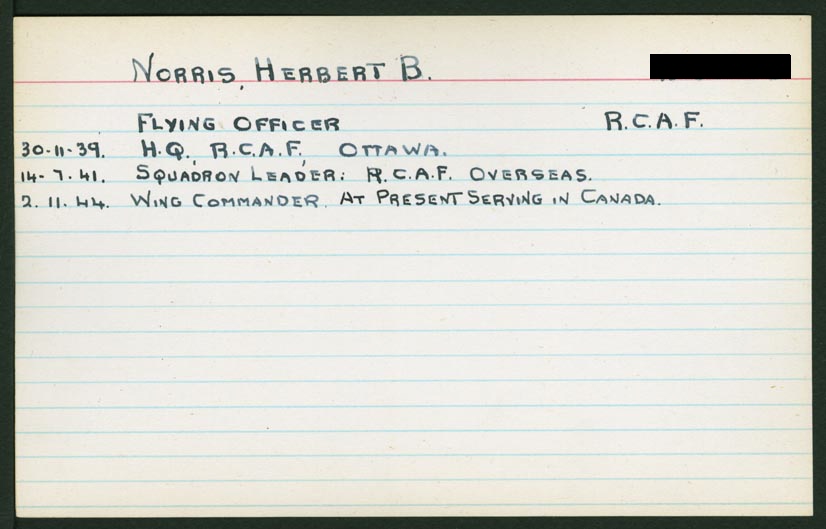 NORRIS, HERBERT B.
FLYING OFFICER R.C.A.F.
30-11-39. H.Q., R.C.A.F., OTTAWA.
14-7.41. SQUADRON LEADER: R.C.A.F. OVERSEAS.
2.11.44. WING COMMANDER. AT PRESENT SERVING IN CANADA.